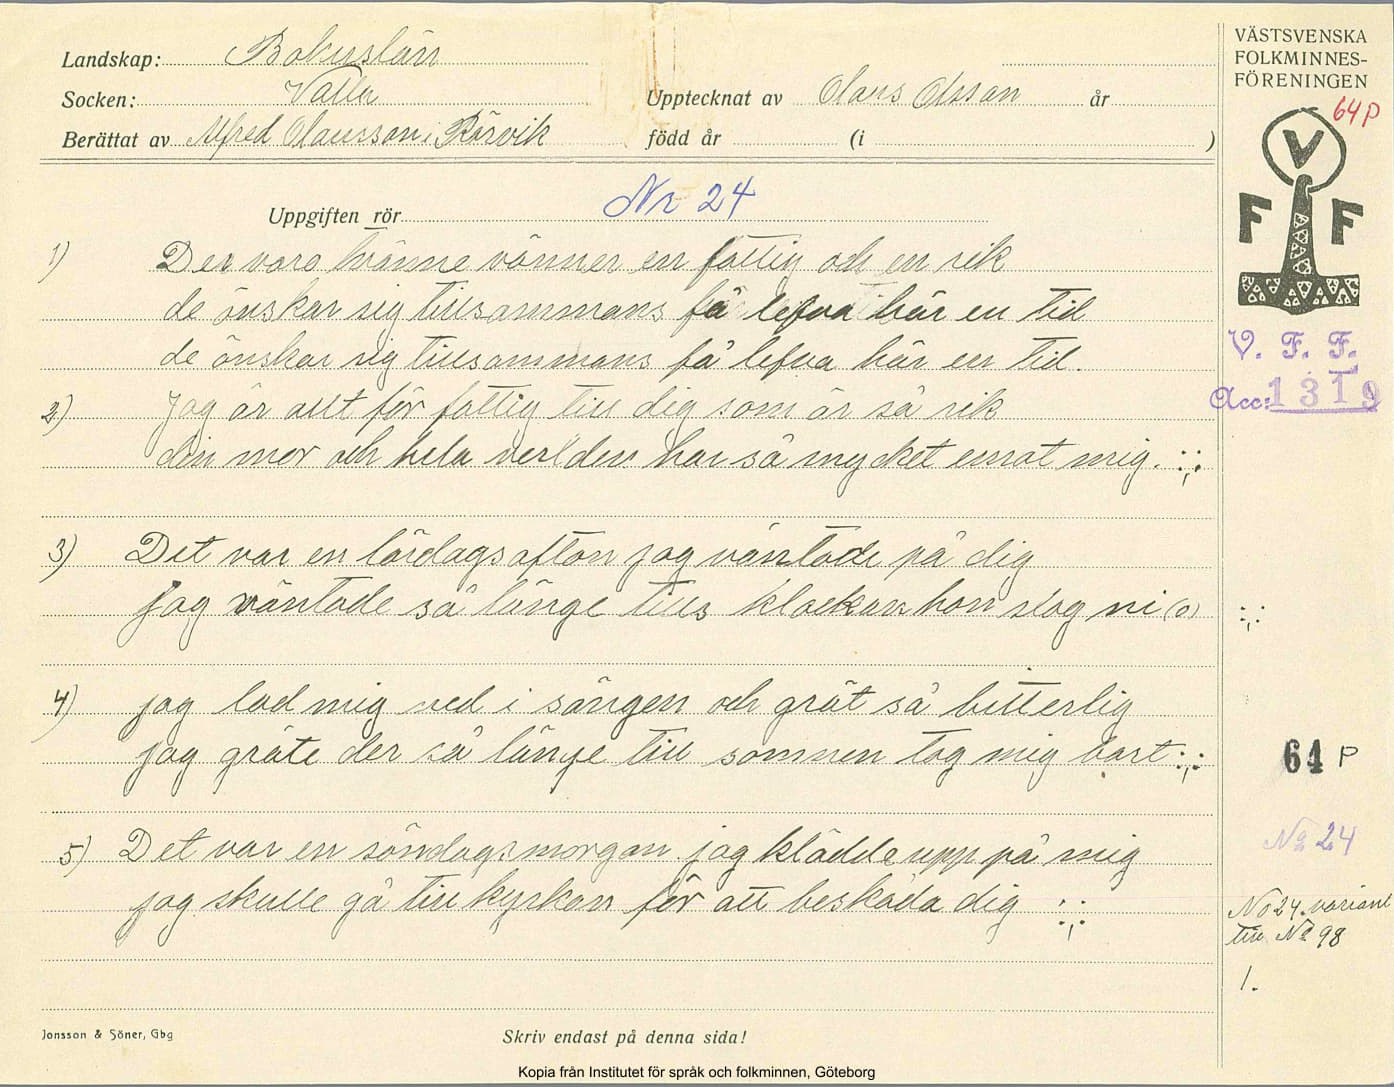 Landskap: Bohuslän
Socken: Valla
Upptecknat av Olaus Olsson år
Berättat av Alfred Olausson i Rörvik
född år (i )
VÄSTSVENSKA
FOLKMINNES-
FÖRENINGEN
64 P
V
F F
Uppgiften rör Nr 24
1) Der voro tvänne vänner en fattig och en rik
de önskar sig tillsammans få lefva här en tid
de önskar sig tillsammans få lefva här en tid.
V. F. F.
Acc: 1319
2) Jag är allt för fattig till dig som är så rik
din mor och hela verlden har så mycket emot mig.
3) Det var en lördagsafton jag väntade på dig
jag väntade så länge tills klockan hon slog ni(o)
4) jag lad mig ned i sängen och grät så bitterlig
jag gräte der så länge till somnen tog mig bort
64 P
5) Det var en söndagsmorgon jag klädde upp på mig
jag skulle gå till kyrkan för att beskåda dig
No 24
No 24. variant
till No 98
1.
Jonsson & Söner, Gbg
Skriv endast på denna sida!
Kopia från Institutet för språk och folkminnen, Göteborg